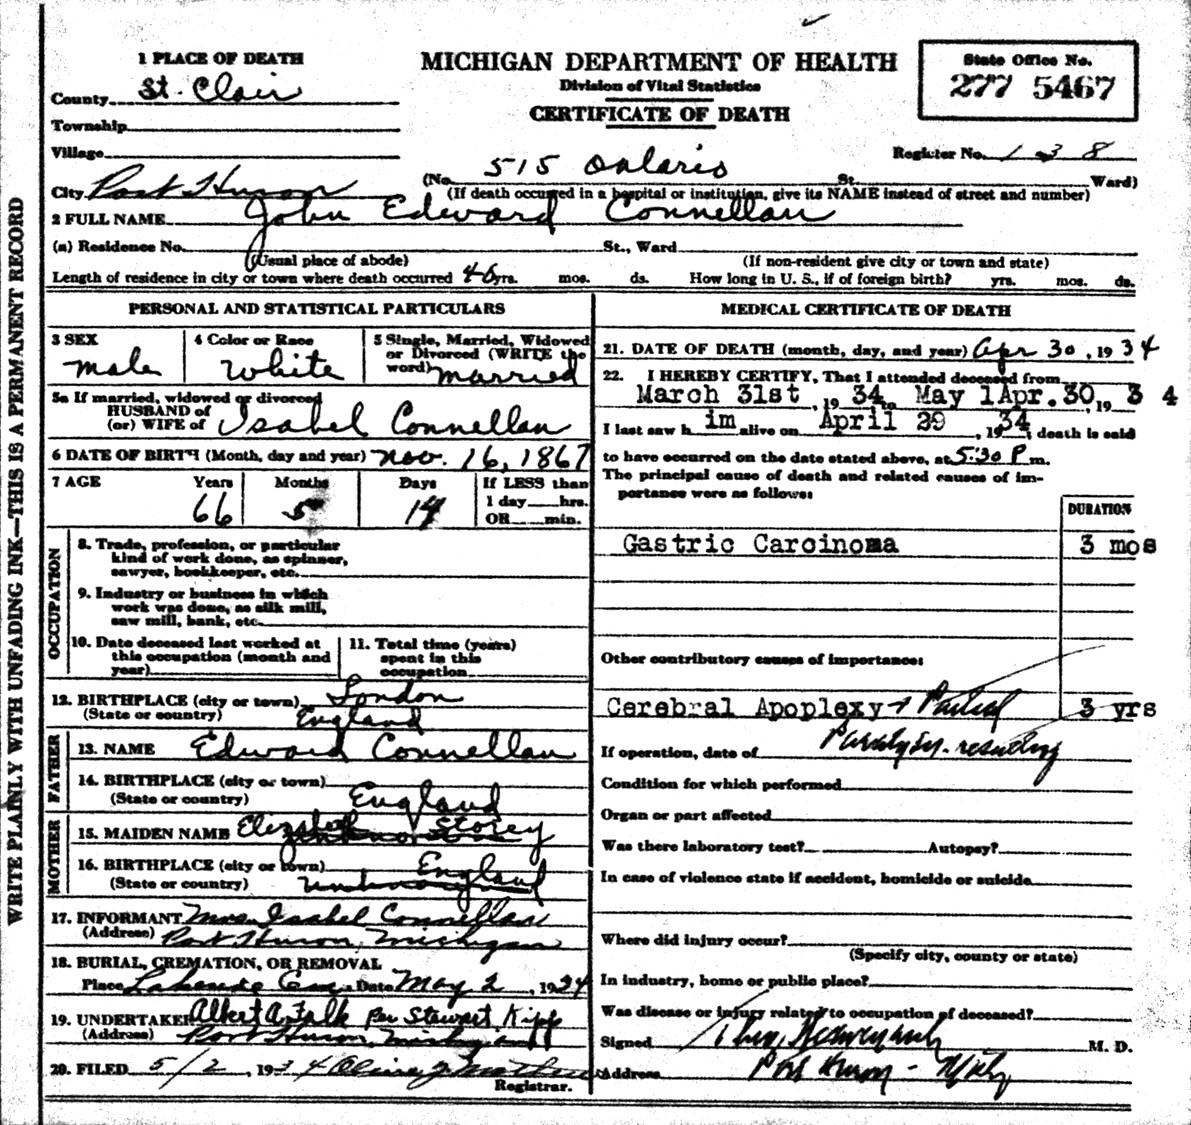 1 PLACE OF DEATH
MICHIGAN DEPARTMENT OF HEALTH
Division of Vital Statistics
CERTIFICATE OF DEATH
State Office No.
277 5467
County St. Clair
Township
Village
Register No. 138
City Port Huron (No. 515 Ontario St. Ward)
(If death occurred in a hospital or institution, give its NAME instead of street and number)
2 FULL NAME John Edward Connellan
(a) Residence No. St., Ward
(Usual place of abode) (If non-resident give city or town and state)
Length of residence in city or town where death occurred 46 yrs. mos. ds. How long in U. S., if of foreign birth? yrs. mos. ds.
WRITE PLAINLY WITH UNFADING INK—THIS IS A PERMANENT RECORD
PERSONAL AND STATISTICAL PARTICULARS
3 SEX
male
4 Color or Race
White
5 Single, Married, Widowed
or Divorced (WRITE the
word) married
5a If married, widowed or divorced
HUSBAND of
(or) WIFE of Isabel Connellan
6 DATE OF BIRTH (Month, day and year) Nov. 16, 1867
7 AGE Years Months Days If LESS than
1 day hrs.
66 5 14 OR min.
OCCUPATION
8. Trade, profession, or particular
kind of work done, as spinner,
sawyer, bookkeeper, etc.
9. Industry or business in which
work was done, as silk mill,
saw mill, bank, etc.
10. Date deceased last worked at
this occupation (month and
year)
11. Total time (years)
spent in this
occupation
12. BIRTHPLACE (city or town) London
(State or country) England
FATHER
13. NAME Edward Connellan
14. BIRTHPLACE (city or town)
(State or country) England
MOTHER
15. MAIDEN NAME Elizabeth Storey
16. BIRTHPLACE (city or town) England
(State or country) unknown
17. INFORMANT Mrs. Isabel Connellan
(Address) Port Huron, Michigan
18. BURIAL, CREMATION, OR REMOVAL
Place Lakeside Cem. Date May 2, 1934
19. UNDERTAKER Albert A. Falk per Stewart Kipp
(Address) Port Huron, Michigan
20. FILED 5/2, 1934
Registrar.
MEDICAL CERTIFICATE OF DEATH
21. DATE OF DEATH (month, day, and year) Apr 30, 1934
22. I HEREBY CERTIFY, That I attended deceased from
March 31st, 19 34, to May 1 Apr. 30, 19 3 4
I last saw h im alive on April 29, 19 34, death is said
to have occurred on the date stated above, at 5:30 P m.
The principal cause of death and related causes of im-
portance were as follows:
DURATION
Gastric Carcinoma 3 mos
Other contributory causes of importance:
Cerebral Apoplexy + Partial 3 yrs
Paralysis resulting
If operation, date of
Condition for which performed
Organ or part affected
Was there laboratory test? Autopsy?
In case of violence state if accident, homicide or suicide
Where did injury occur?
(Specify city, county or state)
In industry, home or public place?
Was disease or injury related to occupation of deceased?
Signed M. D.
Address Port Huron - Mich